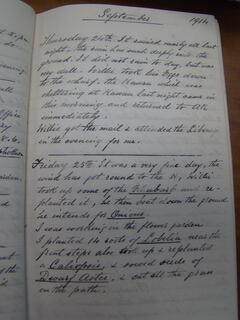 September 1914
Thursday 24th. It rained nearly all last
night. The rain has sunk deeply into the
ground. It did not rain to day, but was
very dull. Willie took his Eggs down
to the wharf, the Rawen which was
sheltering at Kawau last night came in
this morning and returned to Ak
immediately.
Willie got the mail & attended the Library
in the evening for me.
Friday 25th. It was a very fine day, the
wind has got round to the N, Willie
took up some of the Rhubarb and re-
planted it, he then beat down the ground
he intends for Onions.
I was working in the flower garden
I planted 14 roots of Lobelia near the
front steps also took up & replanted
a Caliopsis, & sowed seeds of
Dwarf Aster, & cut all the grass
in the path.